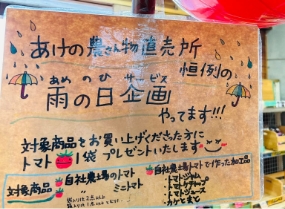 あけの農さん物直売所
恒例の
あめ の ひ サービス
雨の日企画
やってます!!!
対象商品をお買い上げくださった方に
トマト 1袋プレゼントいたします
対象商品
自社農場のトマト
ミニトマト
自社農場トマトで作った加工品
・トマトジュース
・トマトケチャップ